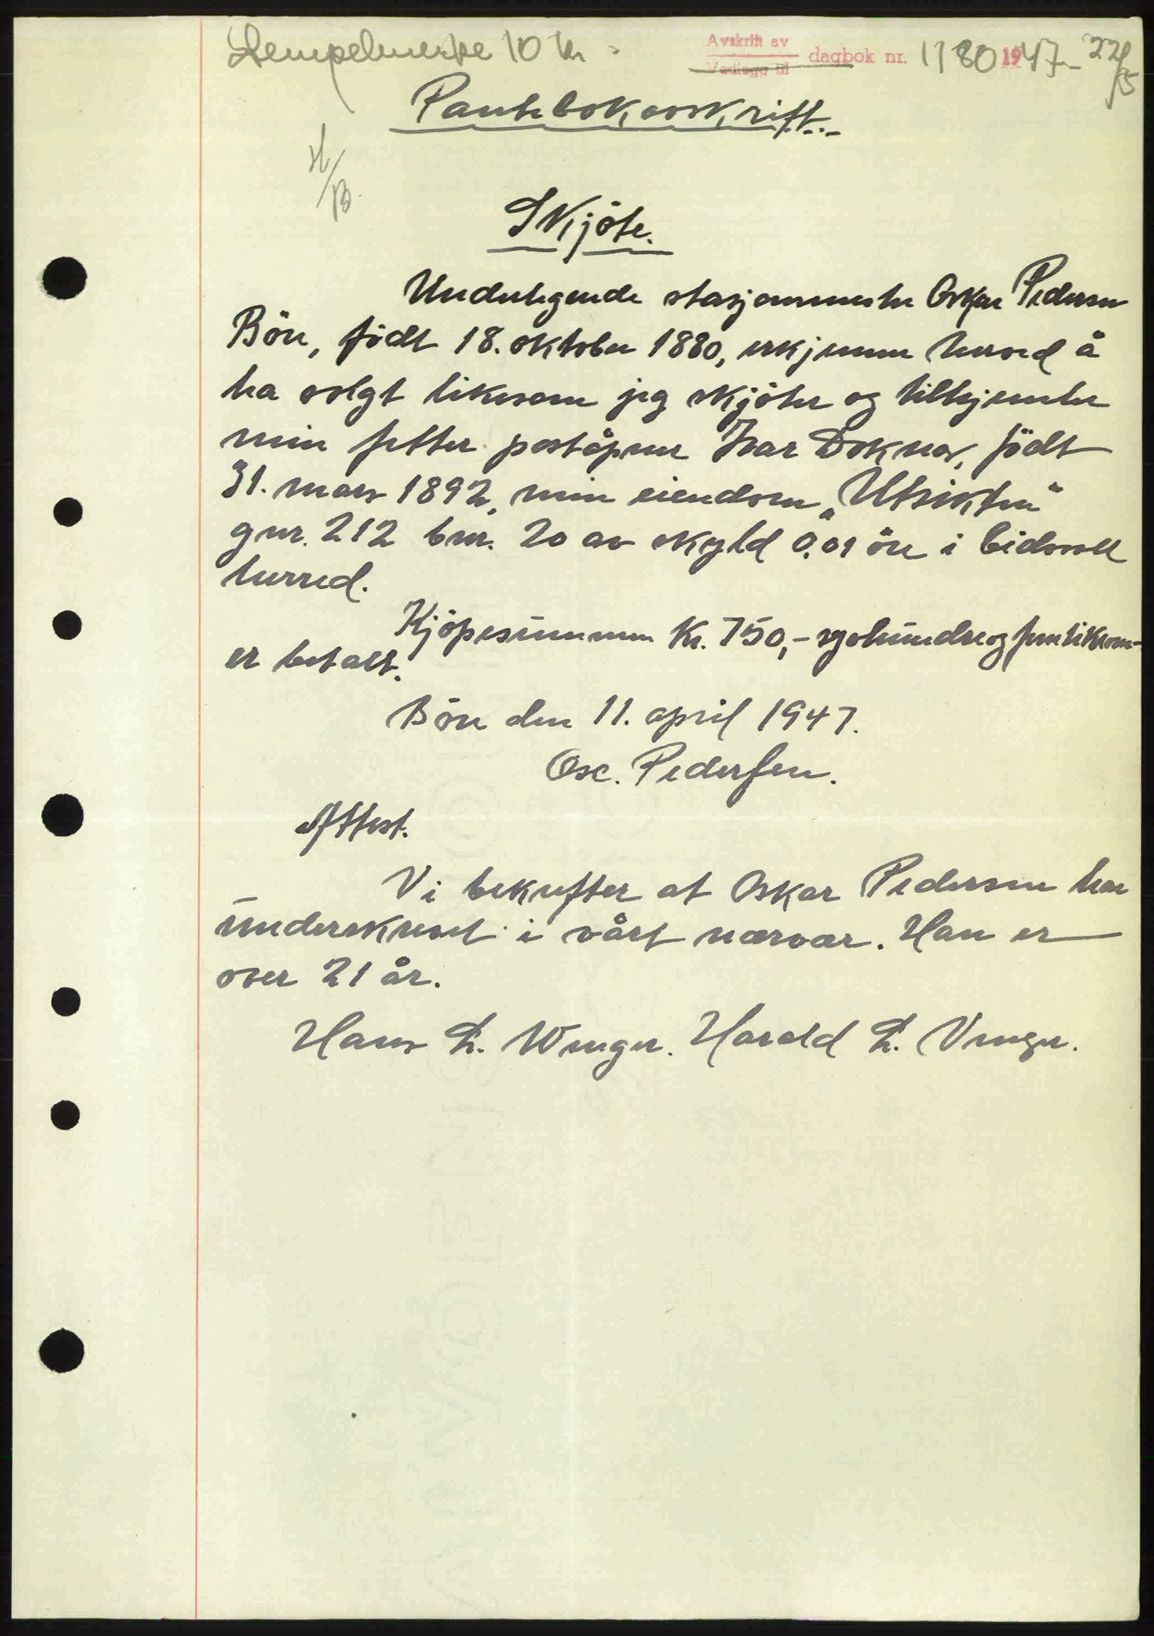 Stempelmerke 10 kr. Avskrift av
Vedlegg til dagbok nr. 1180 1947 - 22/5
Pantebokavskrift.
H/B.
Skjöte.
Undertegnede stasjonsmester Oskar Pedersen
Bön, födt 18. oktober 1880, erkjenner herved å
ha solgt likesom jeg skjöter og tilhjemler
min fetter poståpner Ivar Doknæs, födt
31. mars 1892, min eiendom „Utsikten"
gnr. 212 bnr. 20 av skyld 0.01 öre i Eidsvoll
herred.
Kjöpesummen kr. 750,- syvhundreogfemtikroner-
er betalt.
Bön den 11. april 1947.
Osc. Pedersen.
Attest.
Vi bekrefter at Oskar Pedersen har
underskrevet i vårt nærvær. Han er
over 21 år.
Hans L. Wenger. Harald L. Venger.